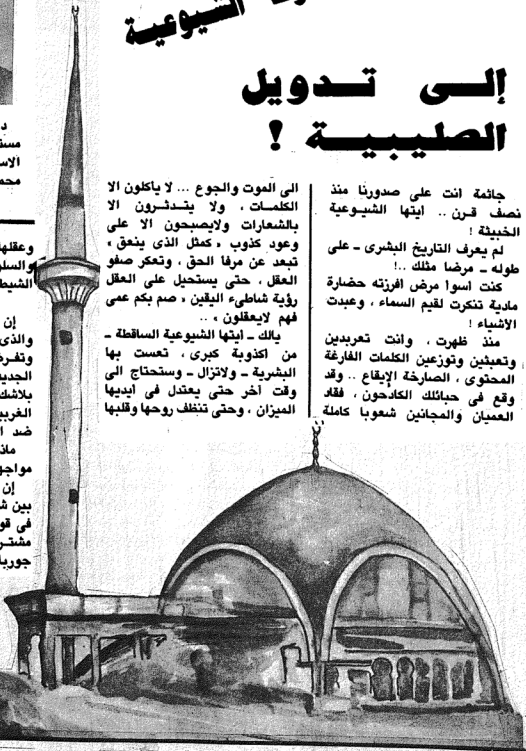 الشيوعية
إلى تدويل
الصليبية !
جاثمة انت على صدورنا منذ
نصف قرن .. ايتها الشيوعية
الخبيثة !
لم يعرف التاريخ البشرى ـ على
طوله ـ مرضا مثلك ..!
كنت اسوا مرض افرزته حضارة
مادية تنكرت لقيم السماء ، وعبدت
الأشياء !
منذ ظهرت ، وأنت تعربدين
وتعبثين وتوزعين الكلمات الفارغة
المحتوى ، الصارخة الإيقاع .. وقد
وقع فى حبائلك الكادحون ، فقاد
العميان والمجانين شعوبا كاملة
الى الموت والجوع ... لا يأكلون الا
الكلمـات ، ولا يتـدثـرون الا
بالشعارات ولايصبحون الا على
وعود كذوب « كمثل الذى ينعق »
تبعد عن مرفا الحق ، وتعكر صفو
العقل ، حتى يستحيل على العقل
رؤية شاطىء اليقين « صم بكم عمى
فهم لايعقلون » ..
يالك ـ ايتها الشيوعية الساقطة ـ
من اكذوبة كبرى ، تعست بها
البشرية ـ ولاتزال ـ وستحتاج الى
وقت آخر حتى يعتدل فى أيديها
الميزان ، وحتى تنظف روحها وقلبها
وعقلها
إن
والذى
الجديد
بلاشك
الغربي
ضد ا
ماذ
مواجه
إن
بين ش
فى قو
مشتر
جوربا